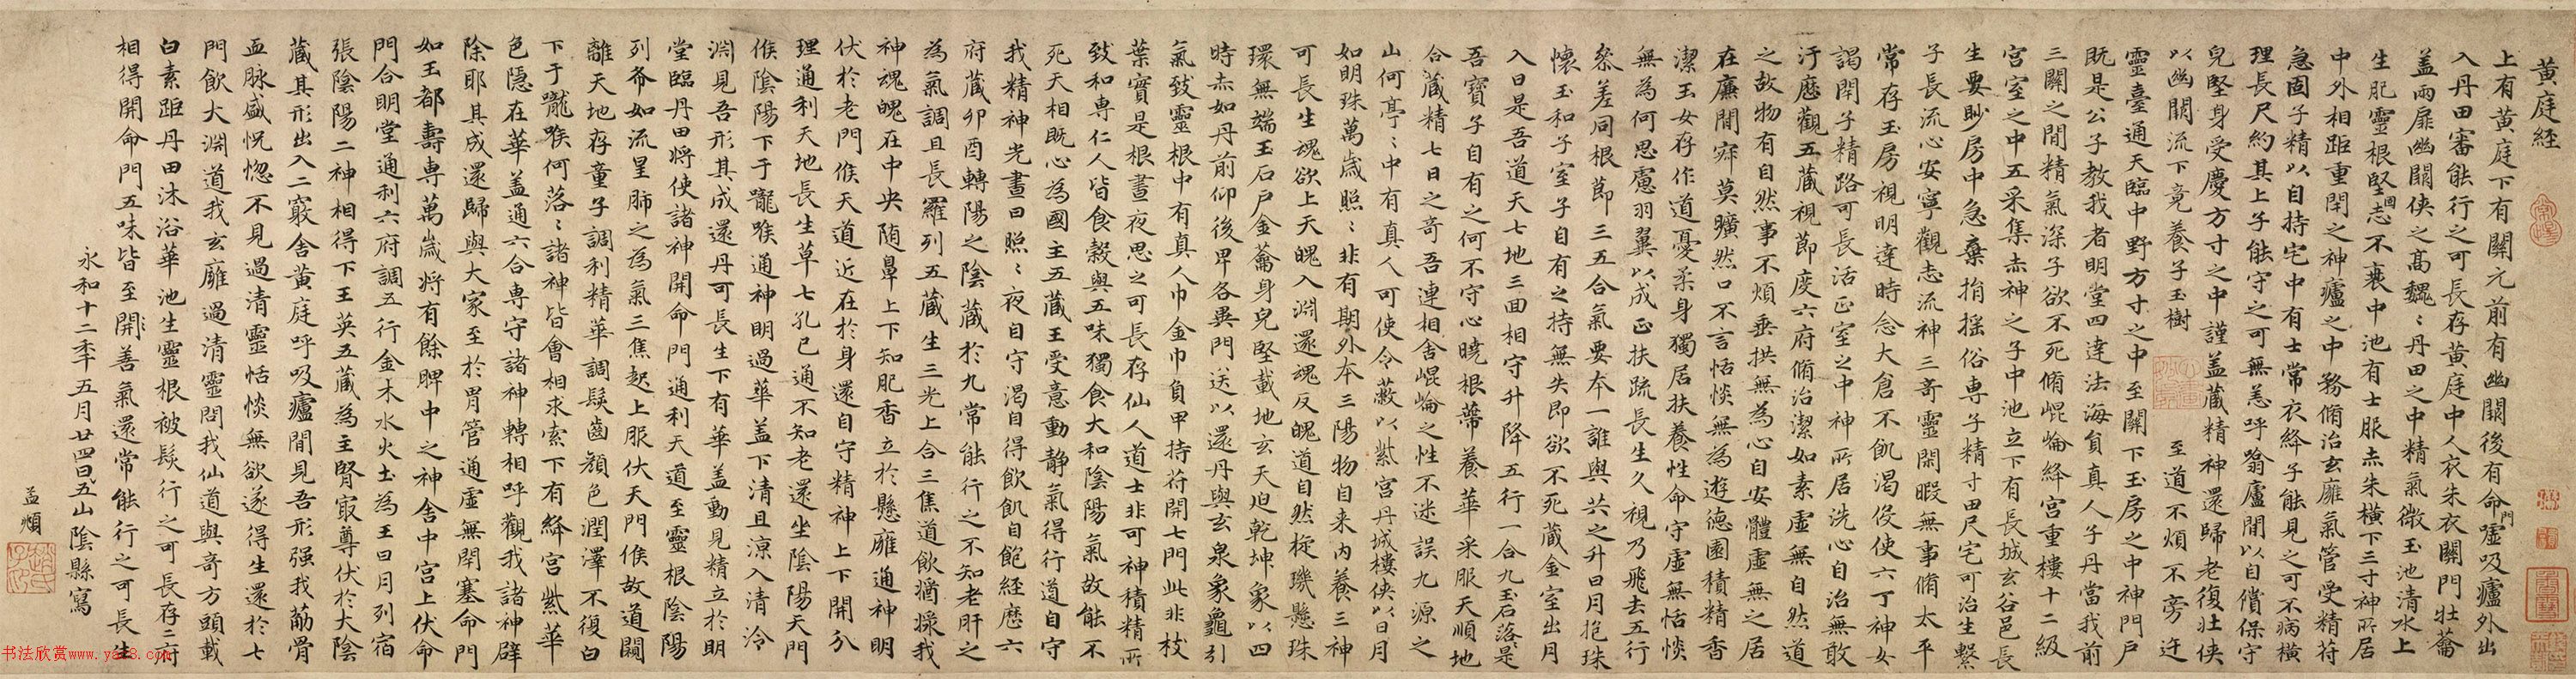 黄庭経
上有黄庭下有關元前有幽關後有命門嘘吸廬外出
入丹田審能行之可長存黄庭中人衣朱衣關門壯蘥
盖兩扉幽關侠之高魏〻丹田之中精氣微玉池清水上
生肥靈根堅固志不衰中池有士服赤朱横下三寸神所居
中外相距重閇之神廬之中務脩治玄廱氣管受精苻
急固子精以自持宅中有士常衣絳子能見之可不病横
理長尺約其上子能守之可無恙呼噏廬間以自償保守
皃堅身受慶方寸之中謹盖藏精神還歸老復壮侠
以幽關流下竟養子玉樹 至道不煩不旁迕
靈臺通天臨中野方寸之中至關下玉房之中神門户
既是公子教我者明堂四達法海負真人子丹當我前
三關之間精氣深子欲不死脩崐崘絳宫重樓十二級
宫室之中五采集赤神之子中池立下有長城玄谷邑長
生要眇房中急棄捐揺俗専子精寸田尺宅可治生繫
子長流心安寧觀志流神三奇靈閑暇無事脩太平
常存玉房視明達時念大倉不飢渴侵使六丁神女
謁閇子精路可長活正室之中神所居洗心自治無敢
汙歴觀五藏視節度六府脩治潔如素虚無自然道
之故物有自然事不煩垂拱無為心自安體虚無之居
在廉間寂莫曠然口不言恬惔無為遊德園積精香
潔玉女存作道憂柔身獨居扶養性命守虚無恬惔
無為何思慮羽翼以成正扶疏長生久視乃飛去五行
叅差同根節三五合氣要本一誰與共之升日月抱珠
懐玉和子室子自有之持無失即欲不死藏金室出月
入日是吾道天七地三回相守升降五行一合九玉石落〻是
吾寶子自有之何不守心曉根蔕養華采服天順地
合藏精七日之奇吾連相舎崐崘之性不迷誤九源之
山何亭〻中有真人可使令蔽以紫宫丹城樓侠以日月
如明珠萬歳照〻非有期外本三陽物自来内養三神
可長生魂欲上天魄入淵還魂反魄道自然㨁璣懸珠
環無端玉石戸金蘥身皃堅載地玄天迫乾坤象以四
時赤如丹前仰後卑各異門送以還丹與玄泉象龜引
氣致靈根中有真人巾金巾負甲持苻開七門此非枝
葉實是根晝夜思之可長存仙人道士非可神積精所
致和専仁人皆食穀與五味獨食大和陰陽氣故能不
死天相既心為國主五藏王受意動静氣得行道自守
我精神光晝日照〻夜自守渴自得飲飢自飽経歴六
府藏卯酉轉陽之陰藏於九常能行之不知老肝之
為氣調且長羅列五藏生三光上合三焦道飲醬漿我
神魂魄在中央随鼻上下知肥香立於懸廱通神明
伏於老門候天道近在於身還自守精神上下開分
理通利天地長生草七孔已通不知老還坐陰陽天門
候陰陽下于嚨喉通神明過華盖下清且涼入清泠
淵見吾形其成還丹可長生下有華盖動見精立於明
堂臨丹田将使諸神開命門通利天道至靈根陰陽
列布如流星肺之為氣三焦起上服伏天門候故道闚
離天地存童子調利精華調髮齒顔色潤澤不復白
下于嚨喉何落〻諸神皆會相求索下有絳宫紫華
色隱在華盖通六合専守諸神轉相呼觀我諸神辟
除耶其成還歸與大家至於胃管通虚無閇塞命門
如玉都壽専萬歳将有餘脾中之神舎中宫上伏命
門合明堂通利六府調五行金木水火土為王日月列宿
張陰陽二神相得下王英五藏為主腎㝡尊伏於大陰
藏其形出入二竅舎黄庭呼吸廬間見吾形强我荕骨
血脉盛怳惚不見過清靈恬惔無欲遂得生還於七
門飲大淵道我玄廱過清靈問我仙道與奇方頭載
白素距丹田沐浴華池生靈根被髮行之可長存二府
相得開命門五味皆至開善氣還常能行之可長生
永和十二年五月廿四日五山陰縣寫
孟頫
书法欣赏www.yac8.com